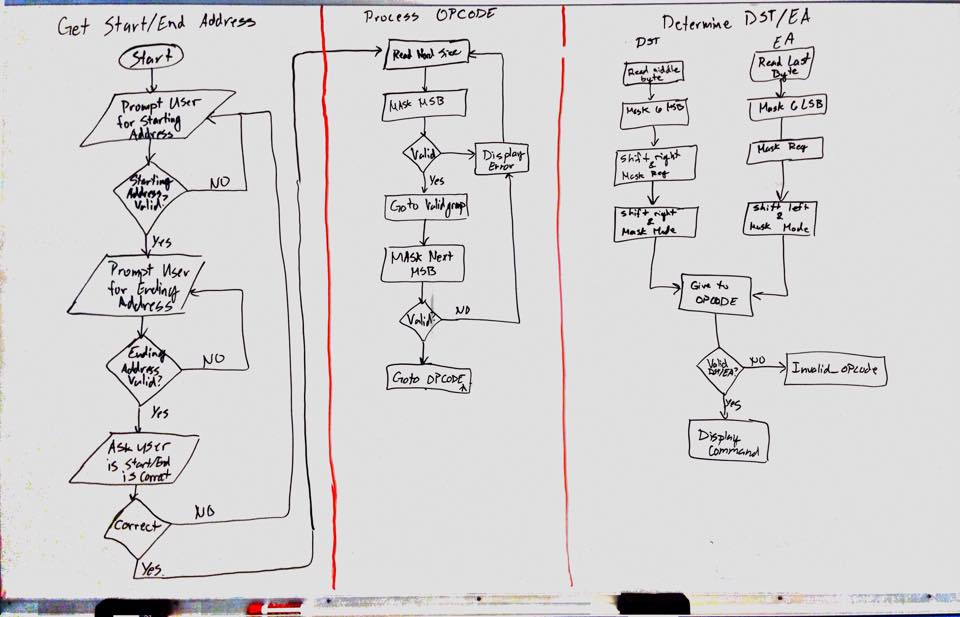 Get Start/End Address
Start
Prompt User
for Starting
Address
Starting
Address
Valid?
NO
Yes
Prompt User
for Ending
Address
Ending
Address
Valid?
NO
Yes
Ask User
is Start/End
is Correct
Correct
NO
Yes
Process OPCODE
Read Word Size
MASK MSB
Valid
Display
Error
Yes
Goto Validgroup
MASK Next
MSB
Valid?
NO
Goto OPCODE
Determine DST/EA
DST
Read middle
byte
Mask 6 MSB
Shift right
&
Mask Reg
Shift right
&
Mask Mode
EA
Read Last
Byte
Mask 6 LSB
Mask Reg
Shift left
&
Mask Mode
Give to
OPCODE
Valid
DST/EA?
NO
Invalid_opcode
Yes
Display
Command